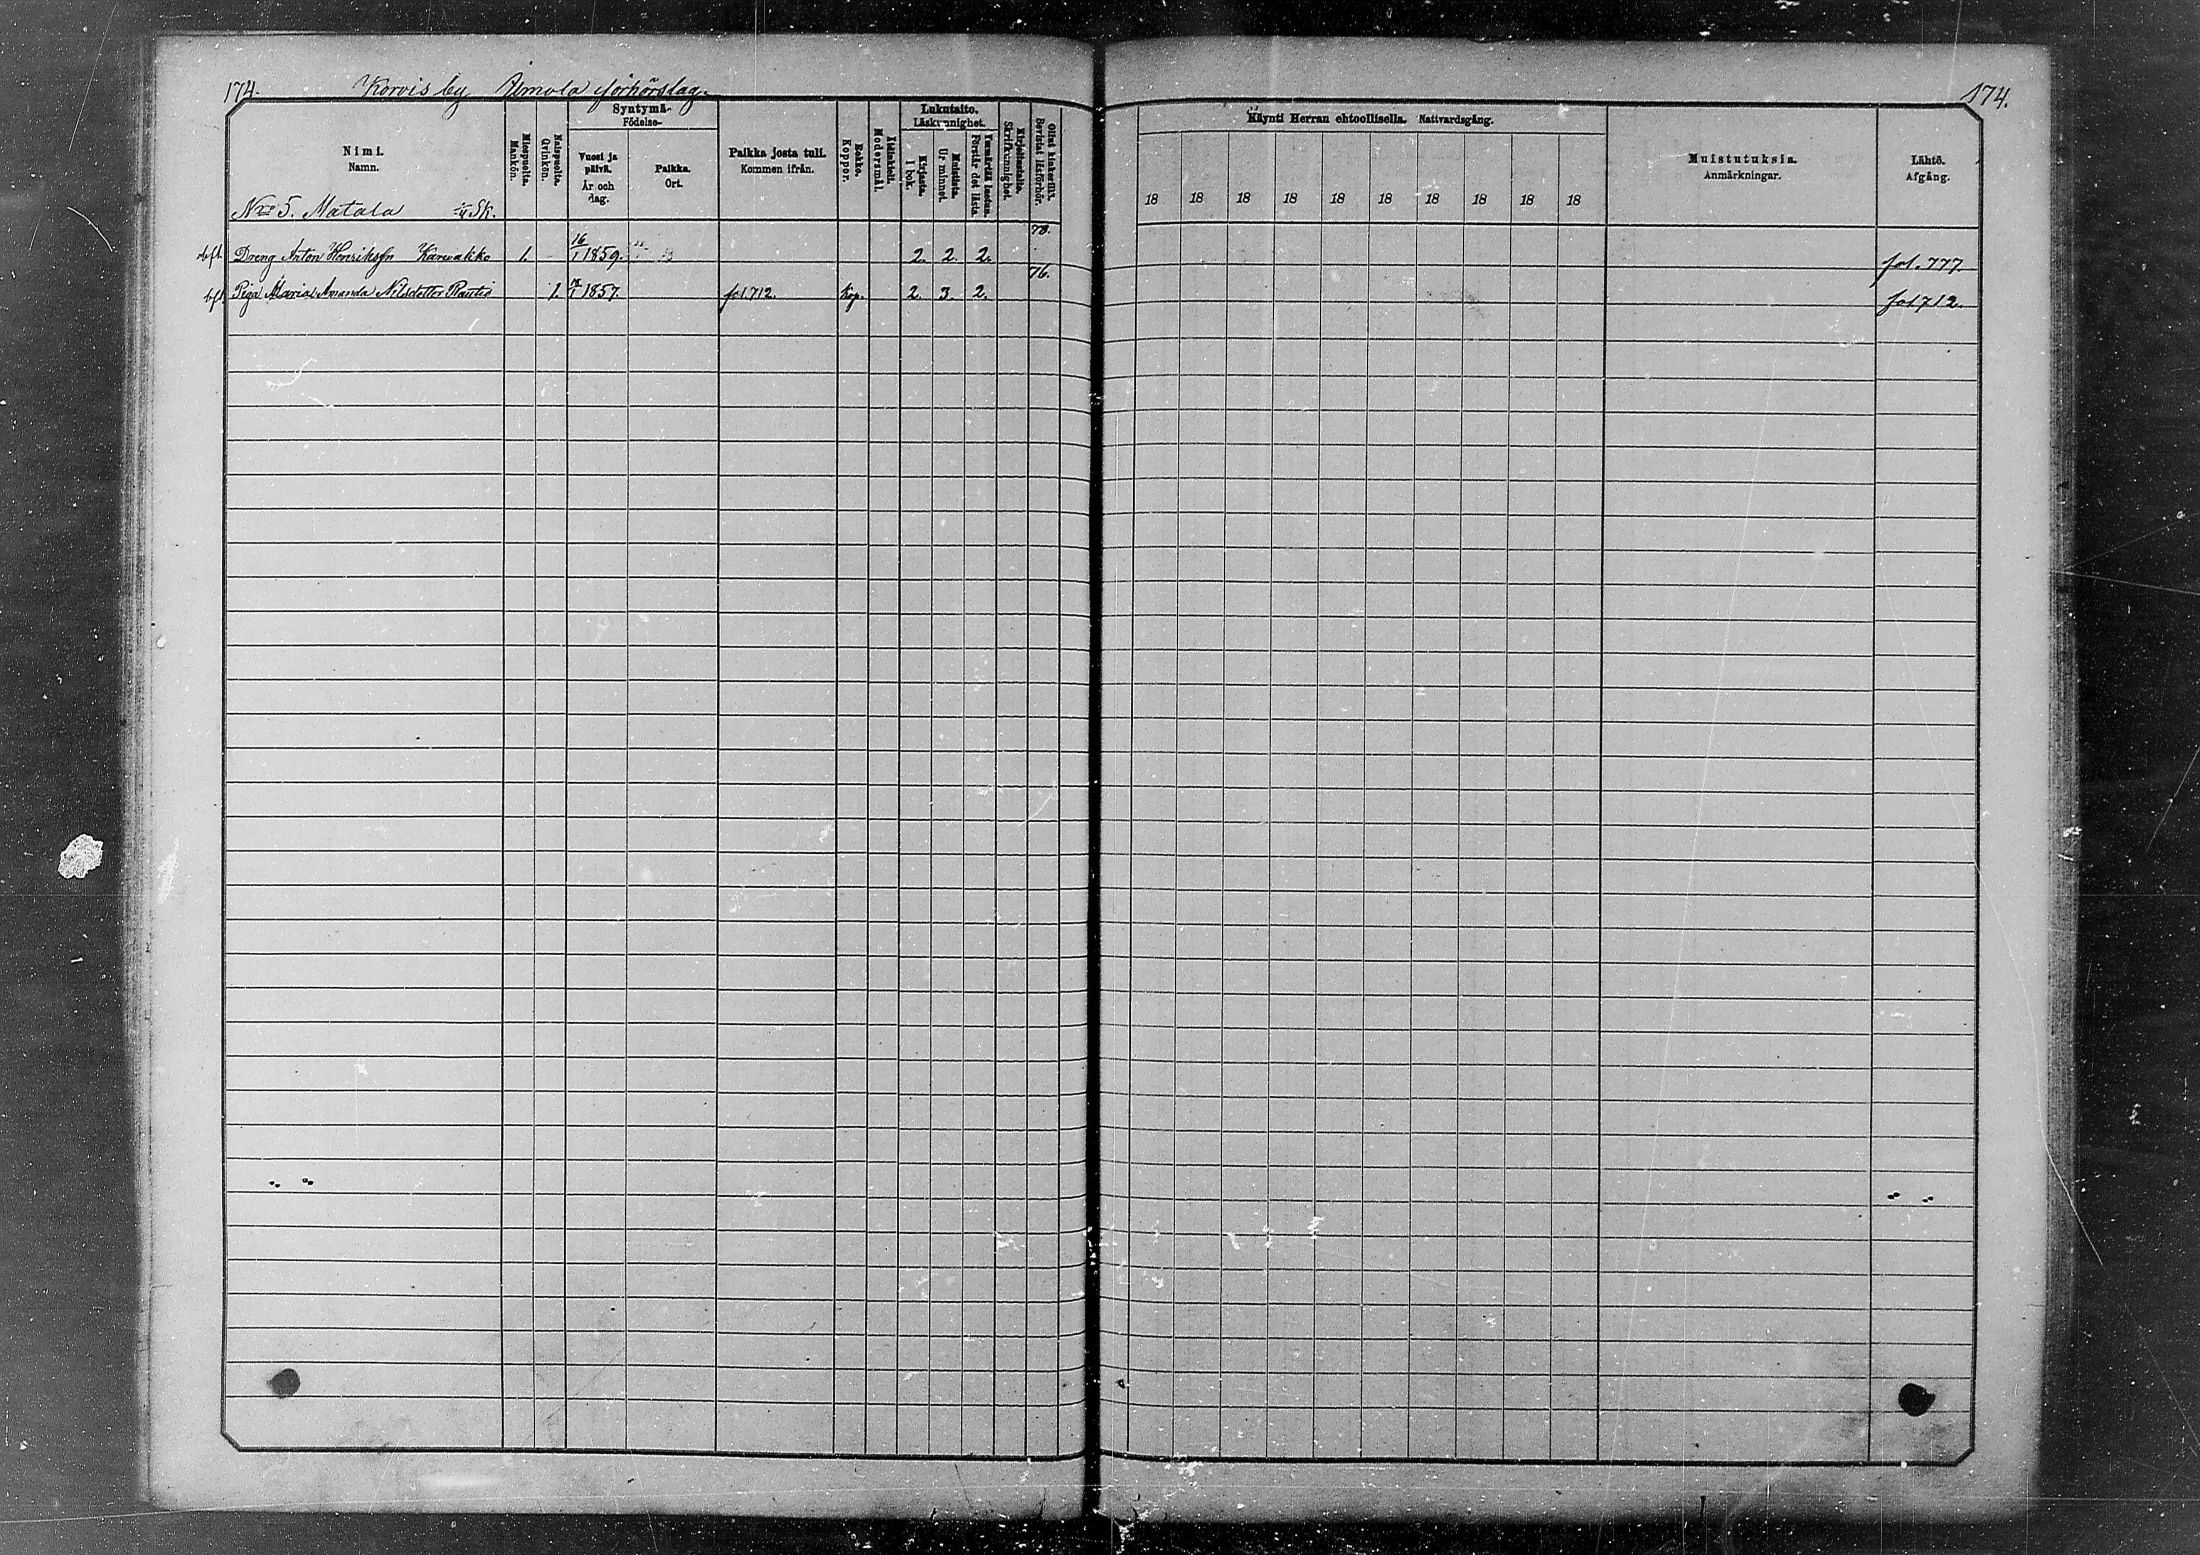 174. Korvis by Ilmola förhörslag.
174.
Nimi.
Namn.
Miespuolta.
Mankön.
Naispuolta.
Qvinkön.
Syntymä-
Födelse-
Vuosi ja päivä.
År och dag.
Paikka.
Ort.
Paikka josta tuli.
Kommen ifrån.
Rokko.
Koppor.
Äidinkieli.
Modersmål.
Lukutaito.
Läskunnighet.
Kirjasta.
I bok.
Muistista.
Ur minnet.
Ymmärtää luetun.
Förstår det lästa.
Kirjoitustaito.
Skrifkunnighet.
Ollut kinkerillä.
Bevistat läsförhör.
Käynti Herran ehtoollisella. Nattvardsgång.
18 18 18 18 18 18 18 18 18 18
Muistutuksia.
Anmärkningar.
Lähtö.
Afgång.
No 5. Matala Sk.
Dreng Anton Henriksson 1. 16/1 1859. 2. 2. 2. 78. fol. 777.
Piga Maria Amanda Nilsdotter 1. 1857. fol. 712. Kop. 2. 3. 2. 76. fol. 712.